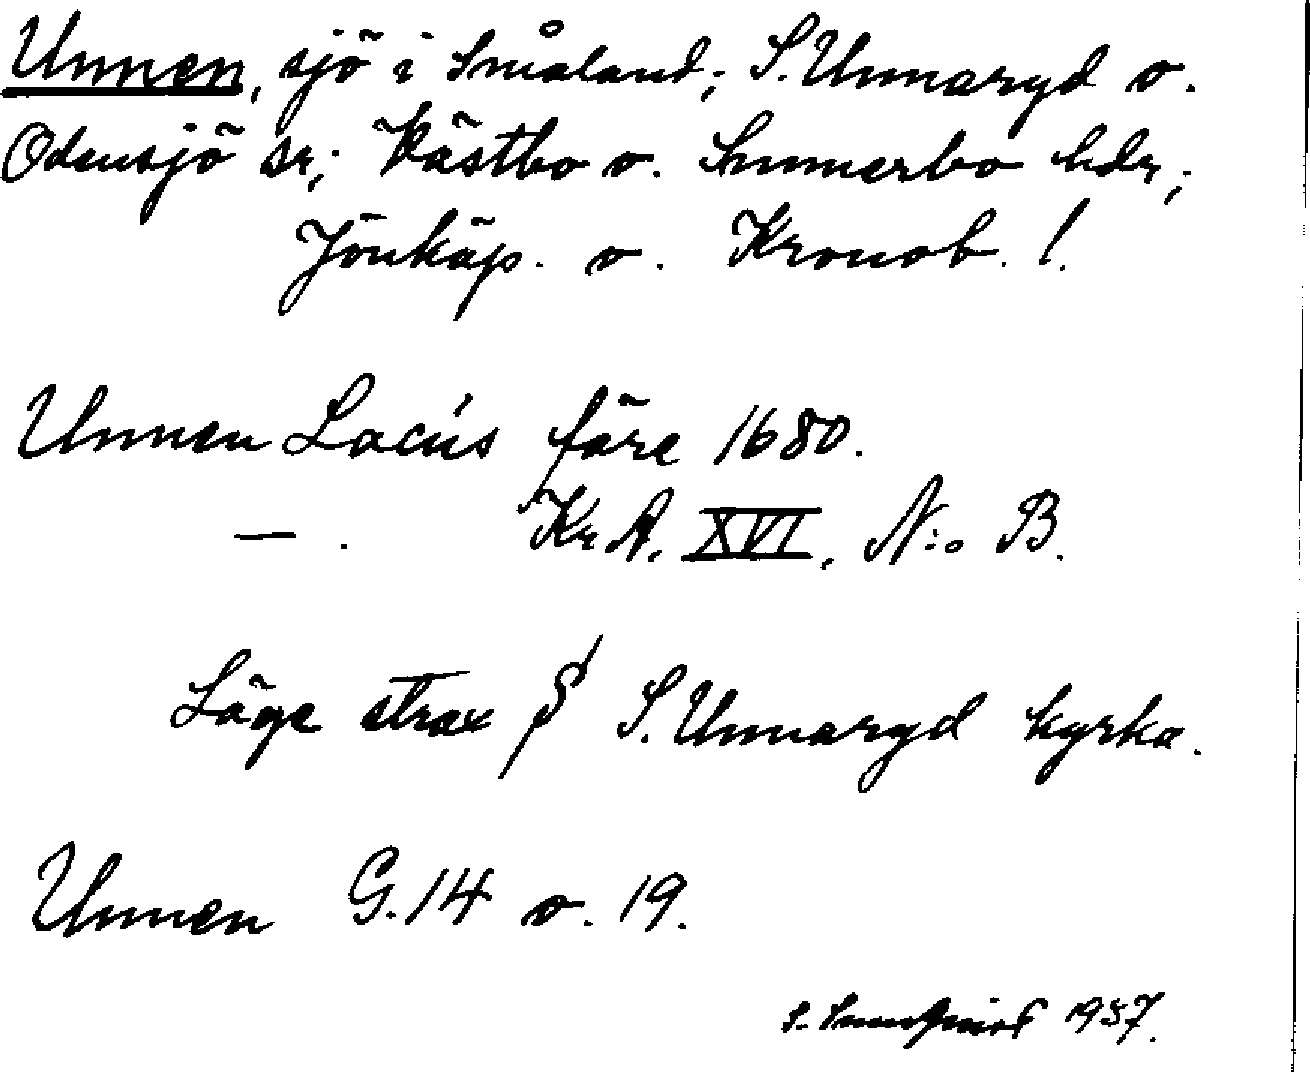 Unnen, sjö i Småland; S. Unnaryd o.
Odensjö sr; Västbo o. Sunnerbo hdr;
Jönköp. o. Kronob. l.
Unnen Lacus före 1680.
— . KrA, XVI, N:o B.
Läge strax S S. Unnaryd kyrka.
Unnen G. 14 o. 19.
S. 1957.